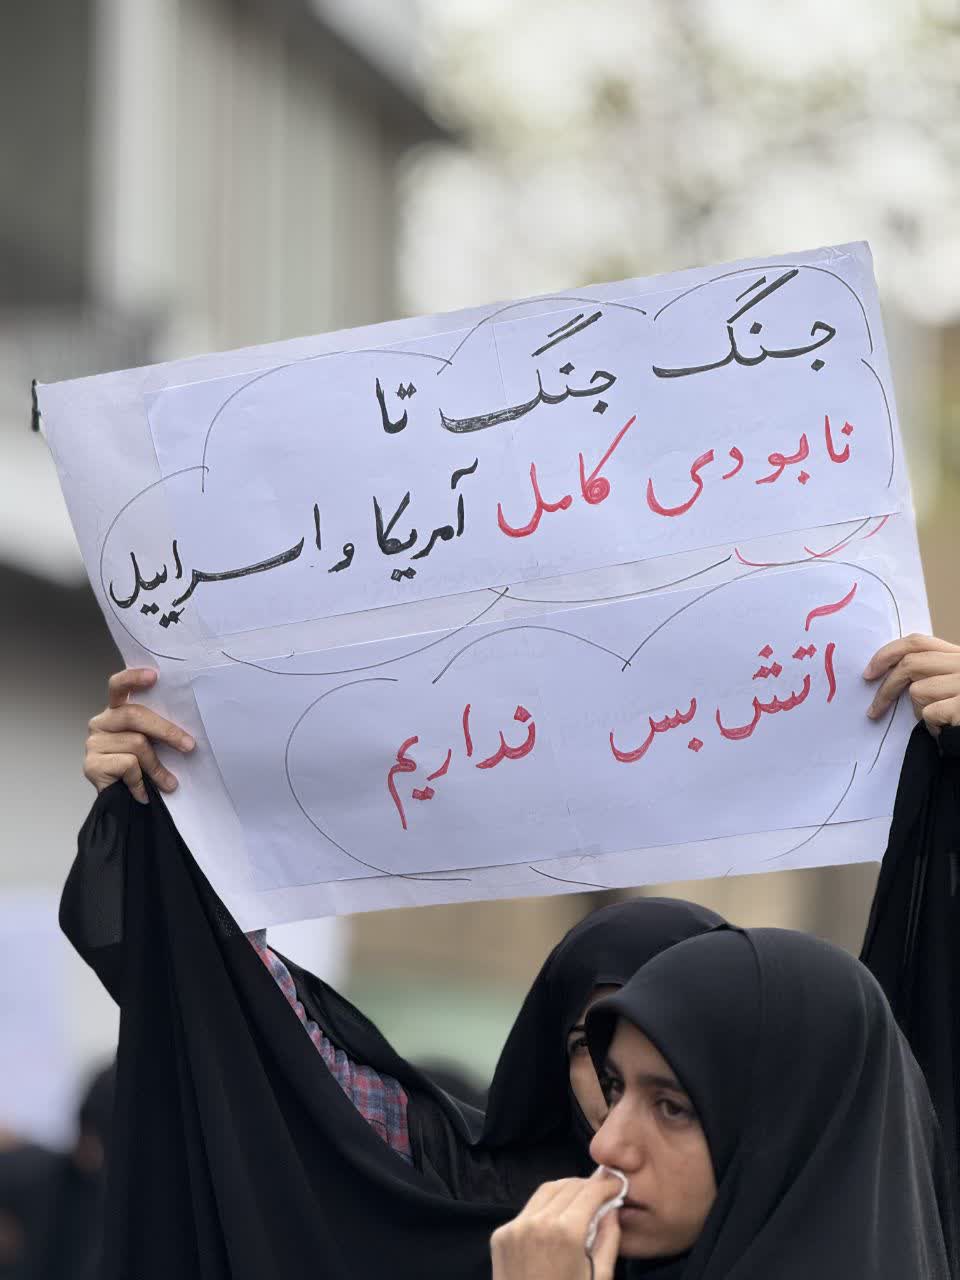 جنگ جنگ تا
نابودی کامل آمریکا و اسراییل
آتش بس نداریم